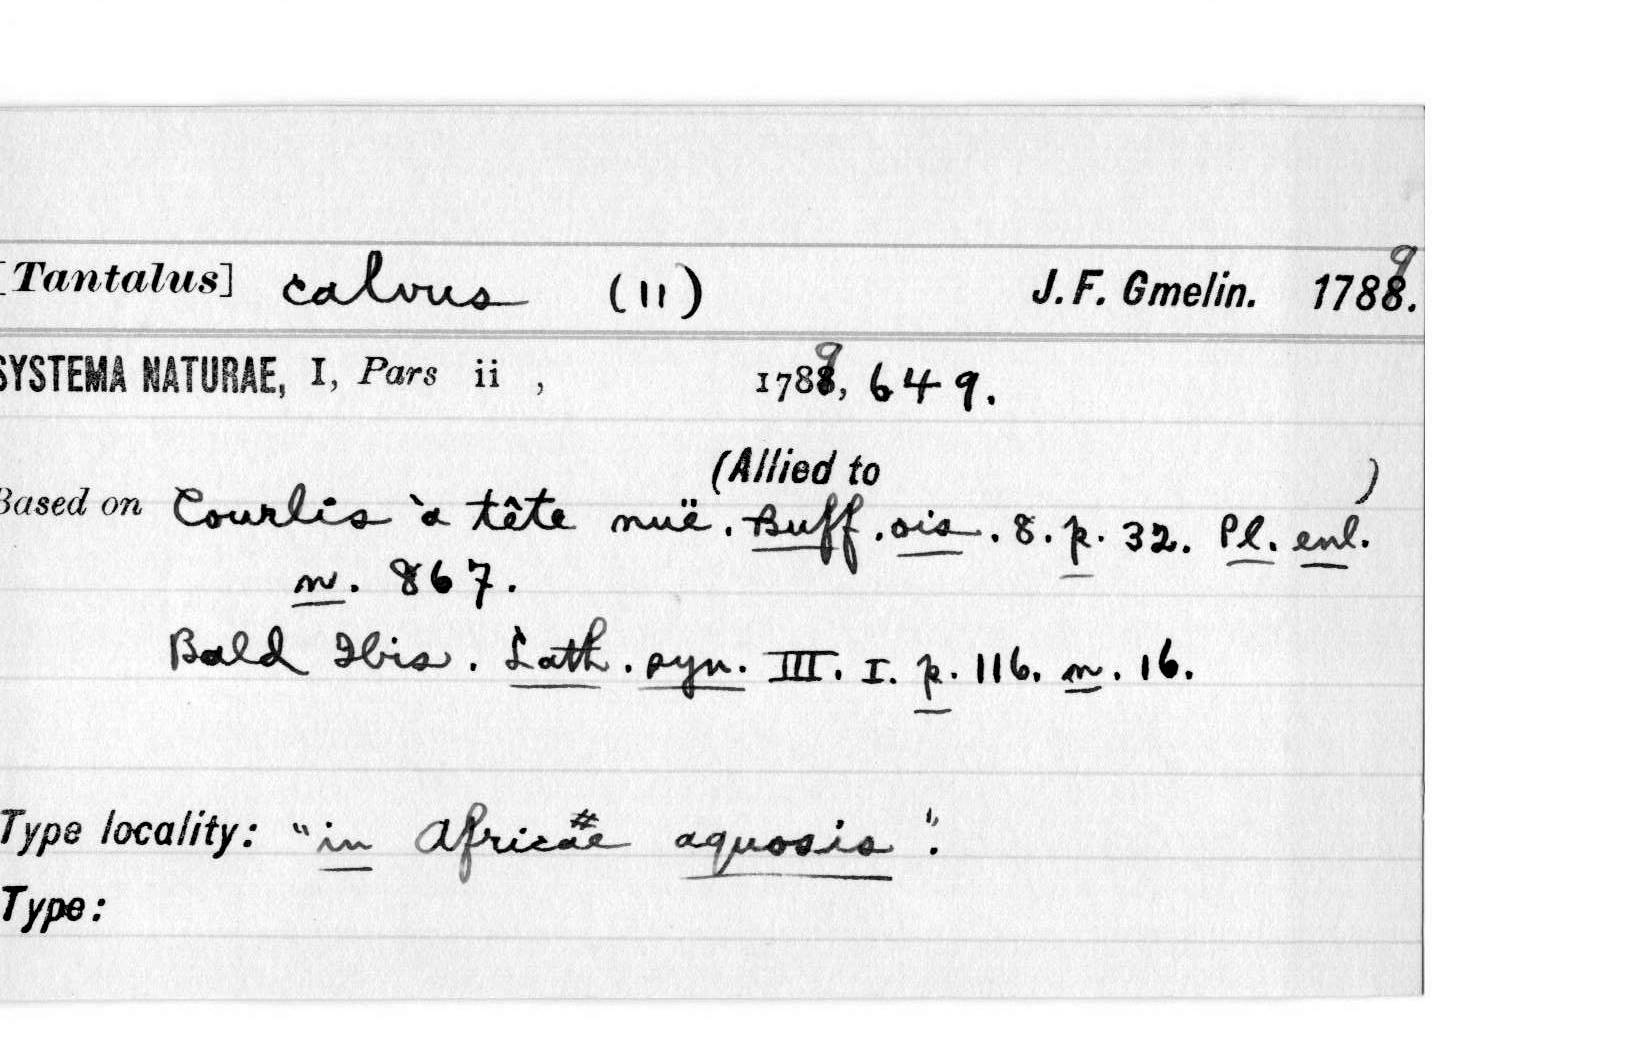 [Tantalus] calvus (11) J. F. Gmelin. 1788. 9
SYSTEMA NATURAE, I, Pars ii , 1788, 9 649.
(Allied to )
Based on Courlis à tête nuë. Buff. ois. 8. p. 32. Pl. enl.
n. 867.
Bald Ibis. Lath. syn. III. I. p. 116. n. 16.
Type locality: "in Africae # aquosis".
Type: